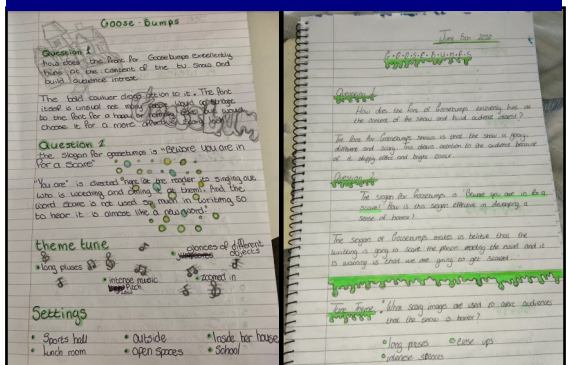 Goose-Bumps
Question 1
how does the font for Goosebumps excellently
hint at the content of the tv show and
build audience intrest.
The bold
itself is unusal not many people would
to the font for a
choose it for a more
Question 2
the slogan for goosebumps is "Beware you are in
for a scare"
"You are" is directed at the reader its singling out
who is watching and at them. And the
word scare is not used so much in writing so
to hear it is almost like a new word!
theme tune
glances of different
objects
• long pluses
• intense music
• zoomed in
Pitch
Settings
• Sports hall
• outside
• Inside her house
• lunch room
• open spaces
• School
June 2020
G.O.O.S.E.B.U.M.P.S
Question 1
How does the font of Goosebumps excellently hint at
the content of the show and build audience interest?
The font for Goosebumps shows us that the show is going
different and scary. This draws attention to the audience because
of it drippy effect and bright colour.
Question 2
The slogan for Goosebumps is 'Beware you are in for a
scare!' How is this slogan effective in developing a
sense of horror?
The slogan of Goosebumps makes us believe that the
writing is going to scare the person reading the novel and it
is warning us that we are going to get scared.
• What scary images are used to convince audiences
that the show is horror?
• long pluses
• close ups
• intense